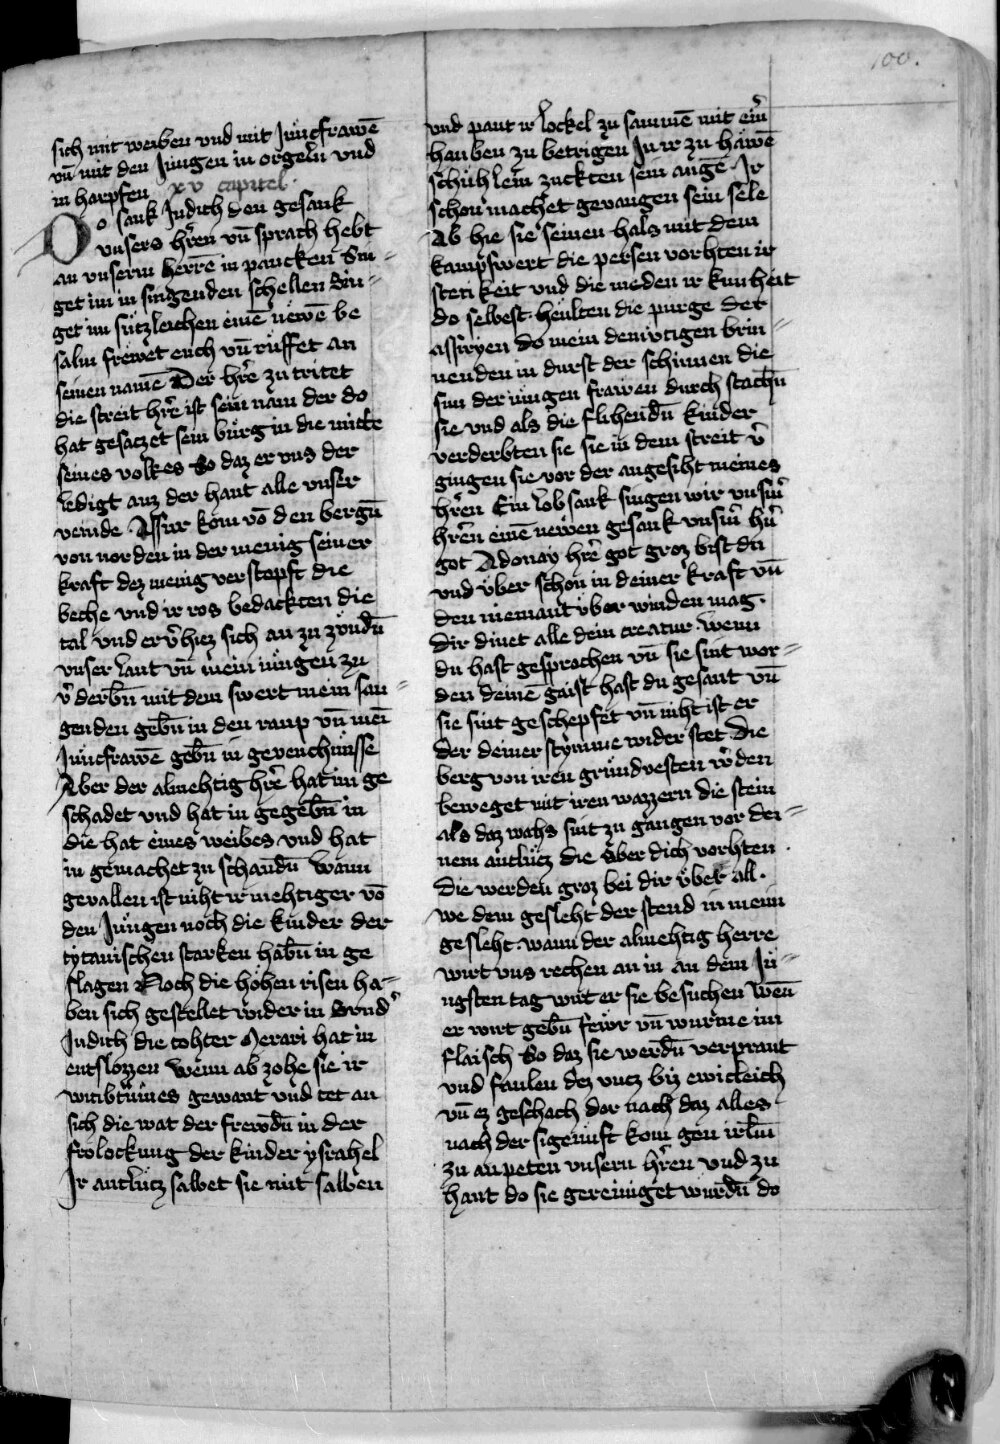 100.
sich mit weiben vnd mit Junͦcfrawē
vn̄ mit den Jungen in orgeln vnd
in harpfen xv capitel.
Do sank Judich den gesank
vnsers hr̄en vn̄ sprach hebt
an vnserm herrē in paucken Sin=
get im in singenden schellen Sin=
get im suͤtzleichen einē newē be
salm frewet euch vn̄ ruͤffet an
seinen namē Der hr̄e zu tritet
die streit hr̄e ist sein nam der do
hat gesaczet sein burg in die mitte
seines volkes So daz er vns der
ledigt auz der hant alle vnser
veinde Assur kom vō den bergn̄
von norden in der menig seiner
kraft dez menig verstopft die
beche vnd ir ros bedackten die
tal vnd er v̄hiez sich an zu zvndn̄
vnser lant vn̄ mein iungen zu
v̄derbn̄ mit dem swert mein sau=
genden gebn̄ in den raup vn̄ mei
Juncfrawē gebn̄ in gevenchnusse
Aber der almehtig hr̄e hat im ge
schadet vnd hat in gegebn̄ in
die hat eines weibes vnd hat
in gemachet zu schandn̄ Wann
gevallen ist niht ir mehtiger vō
den Jungen noch die kinder der
tytanischen starken habn̄ in ge
slagen Noch die hohen risen ha=
ben sich gestellet wider in Svnd'
Judich die tohter Merari hat in
entslozzen Wenn ab zohe sie ir
witibtumes gewant vnd tet an
sich die wat der frewdn̄ in der
frolockung der kinder ysrahel
Ir antlucz salbet sie mit salben
vnd pant ir lockel zu sammē mit ein̄
hauben zu betrigen In ir zu hawē
schuhlein zuckten sein augē Ir
schon machet gevangen sein sele
Ab hie sie seinen hals mit dem
kampfwert die persen vorhten ir
stetikeit vnd die meden ir kunheit
do selbest heulten die purge der
assiryen do mein demutigen brin=
nenden in durst der schinnen die
sun der iungen frawen durch stachn̄
sie vnd als die flihendn̄ kinder
verderbten sie sie in dem streit v̄
gingen sie vor der angesiht meines
hr̄en Ein lobsank singen wir vnsm̄
hr̄en einē newen gesank vnsm̄ hr̄
got Adonay hr̄e got groz bist du
vnd vber schon in deiner kraft vn̄
den niemant vber winden mag.
Dir dinet alle dein creatur. Wenn
du hast gesprochen vn̄ sie sint wor=
den deinē gaist hast du gesant vn̄
sie sint geschepfet vn̄ niht ist er
der deiner stymme wider stet Die
berg von iren gruͤndvesten w̄den
beweget mit iren wazzern die stein
als daz wahs sint zu gangen vor dei=
nem antlucz die aber dich vorhten
Die werden groz bei dir vber all.
we dem gesleht der stend in mein
gesleht. wann der almehtig herre
wirt vns rechen an in an dem Ju=
ngsten tag wirt er sie besuchen Wen̄
er wirt gebn̄ fewr vn̄ wurme im
flaisch So daz sie werdn̄ verprant
vnd faulen dez vncz biz ewicleich
vn̄ ez geschach dor nach daz alles
nach der sigenuft kom gen irl̄m
zu anpeten vnsern hr̄en vnd zu
hant do sie gereiniget wurdn̄ do